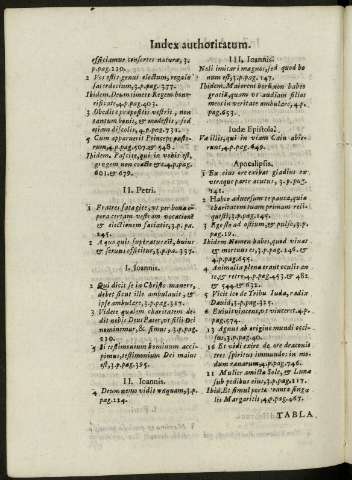 Index authoritatum.
efficiamur consortes naturæ, 3.
p.pag.230.
2 Vos estis genus electum, regale
sacerdotium, 3.p.pag.377.
Ibidem. Deum timete Regem hono-
rificate, 4.p.pag.403.
3 Obedite præpositis vestris, non
tantum bonis, & modestis, sed
etiam discolis, 4.p.pag.731.
5 Cum apparuerit Princeps pasto-
rum, 4.p.pag.507.et 548.
Ibidem, Pascite, qui in vobis est,
gregem non coacte &c. 4.p.pag.
601. et 679.
II. Petri.
1 Fratres satagite, vt per bona o-
pera certam vestram vocationē
& electionem faciatis, 3.p.pa.
245.
2 A quo quis superatus est, huius
& seruus efficitur, 3.p.pa.337.
I. Ioannis.
2 Qui dicit se in Christo manere,
debet sicut ille ambulauit, &
ipse ambulare, 3.p.pag.317.
3 Videte qualem charitatem de-
dit nobis Deus Pater, vt filij Dei
nominemur, & simus, 3.p.pag.
230.
5 Si testimonium hominum acci-
pimus, testimonium Dei maius
est, 3.p.pag.325.
II. Ioannis.
4 Deum nemo vidit vnquam, 3.p.
pag.124.
III. Ioannis.
Noli imitari magnos, sed quod bo
num est, 3.p.pag.147.
Ibidem, Maiorem horum non habeo
gratiã, quam vt audiam filios
meos in veritate ambulare, 4.p.
pag.653.
Iudæ Epistola.
Væ illis, qui in viam Cain abie-
runt, 4.p.pag.649.
Apocalipsis.
1 Ex eius ore exibat gladius ex
vtraque parte acutus, 3.p.pag.
141.
2 Habeo aduersum te pauca, quia
charitatem tuam primam reli-
quisti, 3.p.pag.145.
3 Ego sto ad ostium, & pulso, 3.p.
pag.19.
Ibidem Nomen habes, quod viuas
et mortuus es, 3.p.pag.146. &
4.p.pag.655.
4 Animalia plena erant oculis an
te, et retro, 4.p.pag.453.et 462.
et 544. et 632.
5 Vicit leo de Tribu Iuda, radix
Dauid, 3.p.pag.325.
6 Exiuit vincens, vt vinceret, 4.p.
pag.574.
13 Agnus ab origine mundi occi-
sus, 3.p.pag.40.
16 Et vidi exire de ore draconis
tres spiritus immundos in mo-
dum ranarum, 4.p.pag.746.
21 Mulier amicta Sole, & Luna
sub pedibus eius, 3.p.pag.217.
Ibid. Et simul porta ex vna singu-
lis Margaritis, 4.p.pag.467.
TABLA